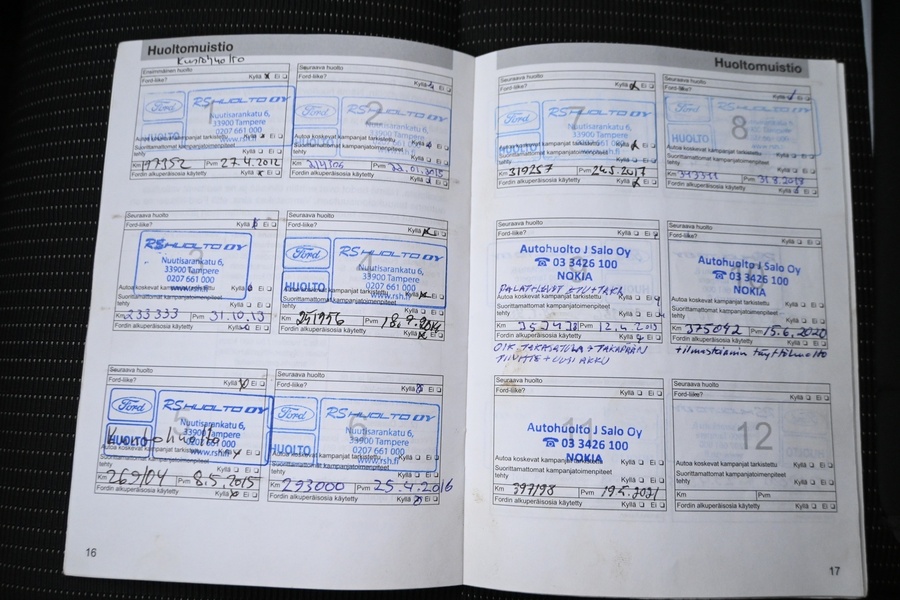 Huoltomuistio
Ensimmäinen huolto
Ford-liike? Kyllä Ei
1
Ford RS HUOLTO OY
Nuutisarankatu 6,
33900 Tampere
0207 661 000
HUOLTO
Autoa koskevat kampanjat tarkistettu
Suorittamattomat kampanjatoimenpiteet
tehty Kyllä Ei
Km Pvm 27.4.2012
Fordin alkuperäisosia käytetty Kyllä Ei
Seuraava huolto
Ford-liike? Kyllä Ei
2
RS HUOLTO OY
Nuutisarankatu 6,
33900 Tampere
0207 661 000
Autoa koskevat kampanjat tarkistettu
Suorittamattomat kampanjatoimenpiteet
tehty Kyllä Ei
Km Pvm
Fordin alkuperäisosia käytetty Kyllä Ei
Seuraava huolto
Ford-liike? Kyllä Ei
3
RS HUOLTO OY
Nuutisarankatu 6,
33900 Tampere
0207 661 000
www.rsh.fi
Autoa koskevat kampanjat tarkistettu
Suorittamattomat kampanjatoimenpiteet
tehty Kyllä Ei
Km 233333 Pvm 31.10.13
Fordin alkuperäisosia käytetty Kyllä Ei
Seuraava huolto
Ford-liike? Kyllä Ei
4
Ford RS HUOLTO OY
Nuutisarankatu 6,
33900 Tampere
0207 661 000
HUOLTO www.rsh.fi
Autoa koskevat kampanjat tarkistettu
Suorittamattomat kampanjatoimenpiteet
tehty Kyllä Ei
Km 251956 Pvm 18.9.2014
Fordin alkuperäisosia käytetty Kyllä Ei
Seuraava huolto
Ford-liike? Kyllä Ei
5
Ford RS HUOLTO OY
Nuutisarankatu 6,
33900 Tampere
0207 661 000
HUOLTO www.rsh.fi
Autoa koskevat kampanjat tarkistettu
Suorittamattomat kampanjatoimenpiteet
tehty Kyllä Ei
Km 269104 Pvm 8.5.2015
Fordin alkuperäisosia käytetty Kyllä Ei
Seuraava huolto
Ford-liike? Kyllä Ei
6
Ford RS HUOLTO OY
Nuutisarankatu 6,
33900 Tampere
0207 661 000
HUOLTO www.rsh.fi
Autoa koskevat kampanjat tarkistettu
Suorittamattomat kampanjatoimenpiteet
tehty Kyllä Ei
Km 293000 Pvm 25.4.2016
Fordin alkuperäisosia käytetty Kyllä Ei
16
Huoltomuistio
Seuraava huolto
Ford-liike? Kyllä Ei
7
Ford RS HUOLTO OY
Nuutisarankatu 6,
33900 Tampere
0207 661 000
HUOLTO
Autoa koskevat kampanjat tarkistettu
Suorittamattomat kampanjatoimenpiteet
tehty Kyllä Ei
Km 319257 Pvm 24.5.2017
Fordin alkuperäisosia käytetty Kyllä Ei
Seuraava huolto
Ford-liike? Kyllä Ei
8
Ford RS HUOLTO OY
HUOLTO
Autoa koskevat kampanjat tarkistettu
Suorittamattomat kampanjatoimenpiteet
tehty Kyllä Ei
Km Pvm 31.8.2018
Fordin alkuperäisosia käytetty Kyllä Ei
Seuraava huolto
Ford-liike? Kyllä Ei
Autohuolto J Salo Oy
☎ 03 3426 100
NOKIA
PALAT+LEVYT ETU+TAKA
Autoa koskevat kampanjat tarkistettu Kyllä Ei
Suorittamattomat kampanjatoimenpiteet
tehty Kyllä Ei
Km Pvm 12.4.2019
Fordin alkuperäisosia käytetty Kyllä Ei
OIK. TAKASATULA + TAKAPÄÄN
+ UUSI AKKU
Seuraava huolto
Ford-liike? Kyllä Ei
Autohuolto J Salo Oy
☎ 03 3426 100
NOKIA
Autoa koskevat kampanjat tarkistettu Kyllä Ei
Suorittamattomat kampanjatoimenpiteet
tehty Kyllä Ei
Km 375092 Pvm 15.6.2020
Fordin alkuperäisosia käytetty Kyllä Ei
+ilmastoinnin täyttöhuolto
Seuraava huolto
Ford-liike? Kyllä Ei
11
Autohuolto J Salo Oy
☎ 03 3426 100
NOKIA
Autoa koskevat kampanjat tarkistettu Kyllä Ei
Suorittamattomat kampanjatoimenpiteet
tehty Kyllä Ei
Km 397198 Pvm 19.5.2021
Fordin alkuperäisosia käytetty Kyllä Ei
Seuraava huolto
Ford-liike? Kyllä Ei
12
Autoa koskevat kampanjat tarkistettu Kyllä Ei
Suorittamattomat kampanjatoimenpiteet
tehty Kyllä Ei
Km Pvm
Fordin alkuperäisosia käytetty Kyllä Ei
17